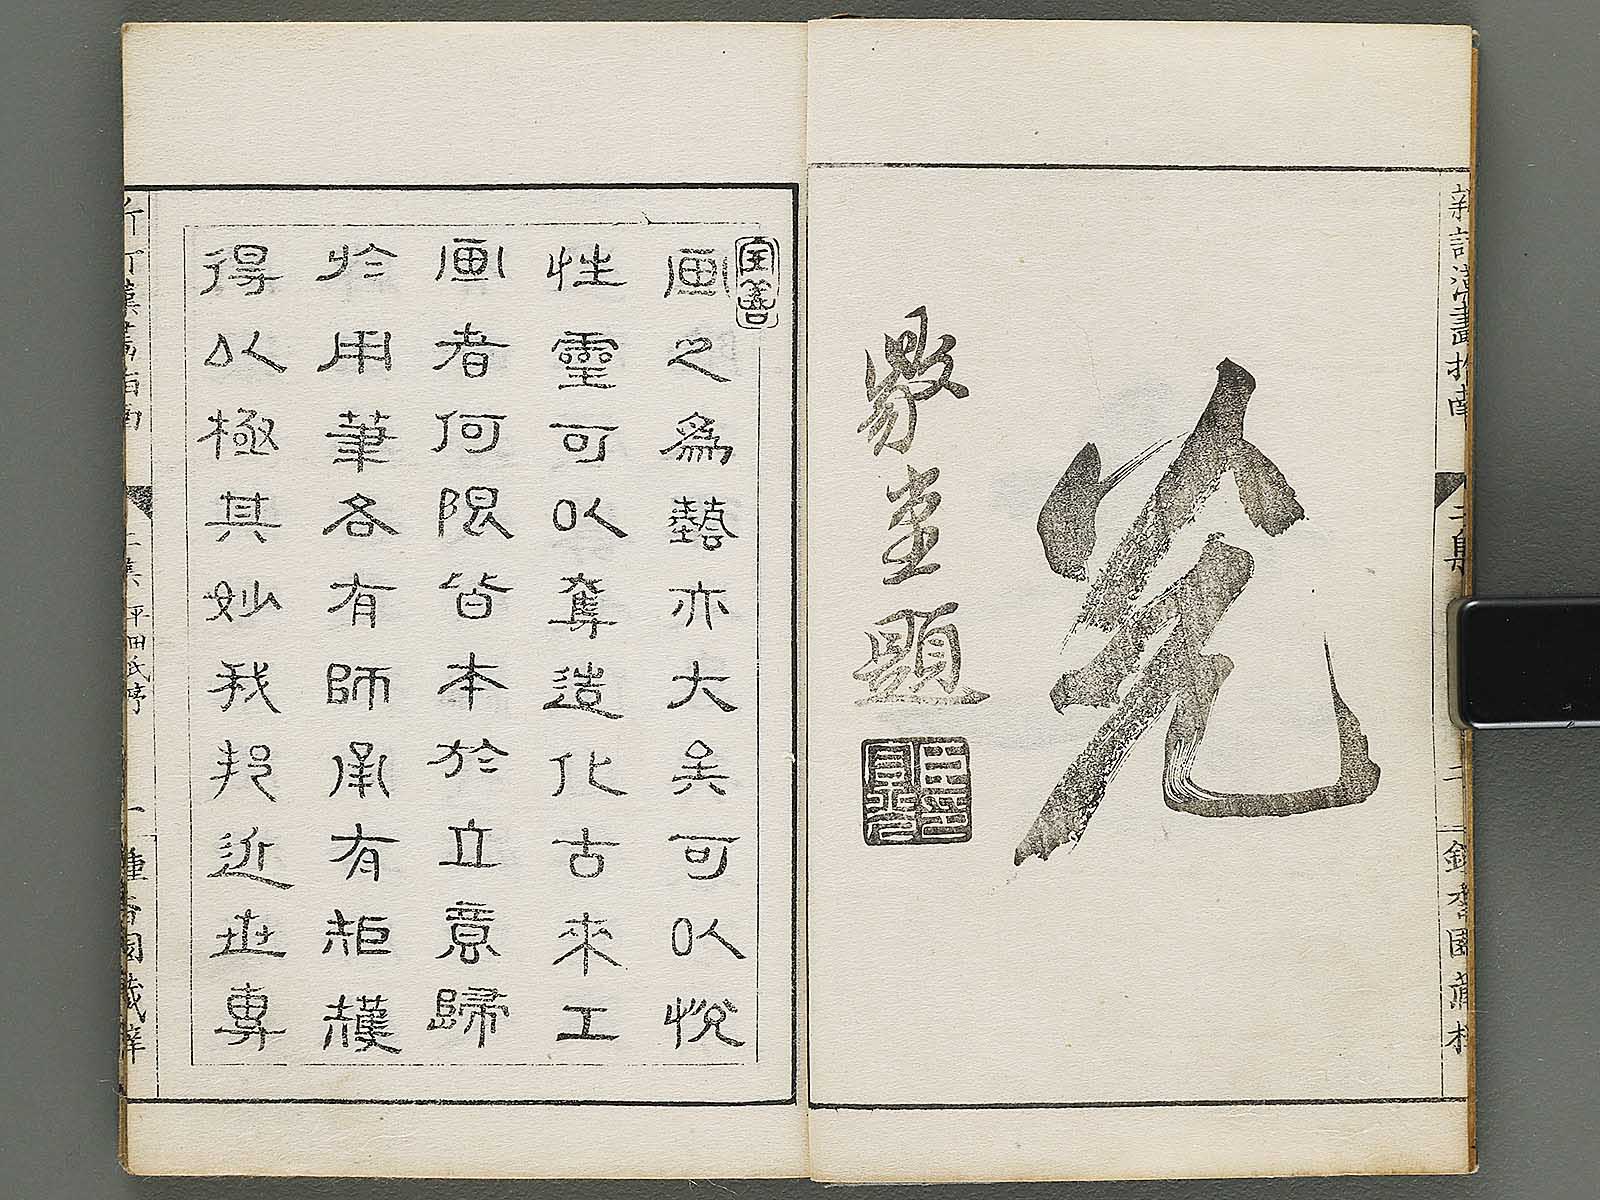 新訂漢畫指南 二集 二 種香園藏梓
堂題
画之爲藝亦大矣可以悅
性靈可以奪造化古來工
画者何限皆本於立意歸
於用筆各有師承有矩矱
得以極其妙我邦近世專
新訂漢畫指南 二集 平田氏亭 一 種香園藏梓